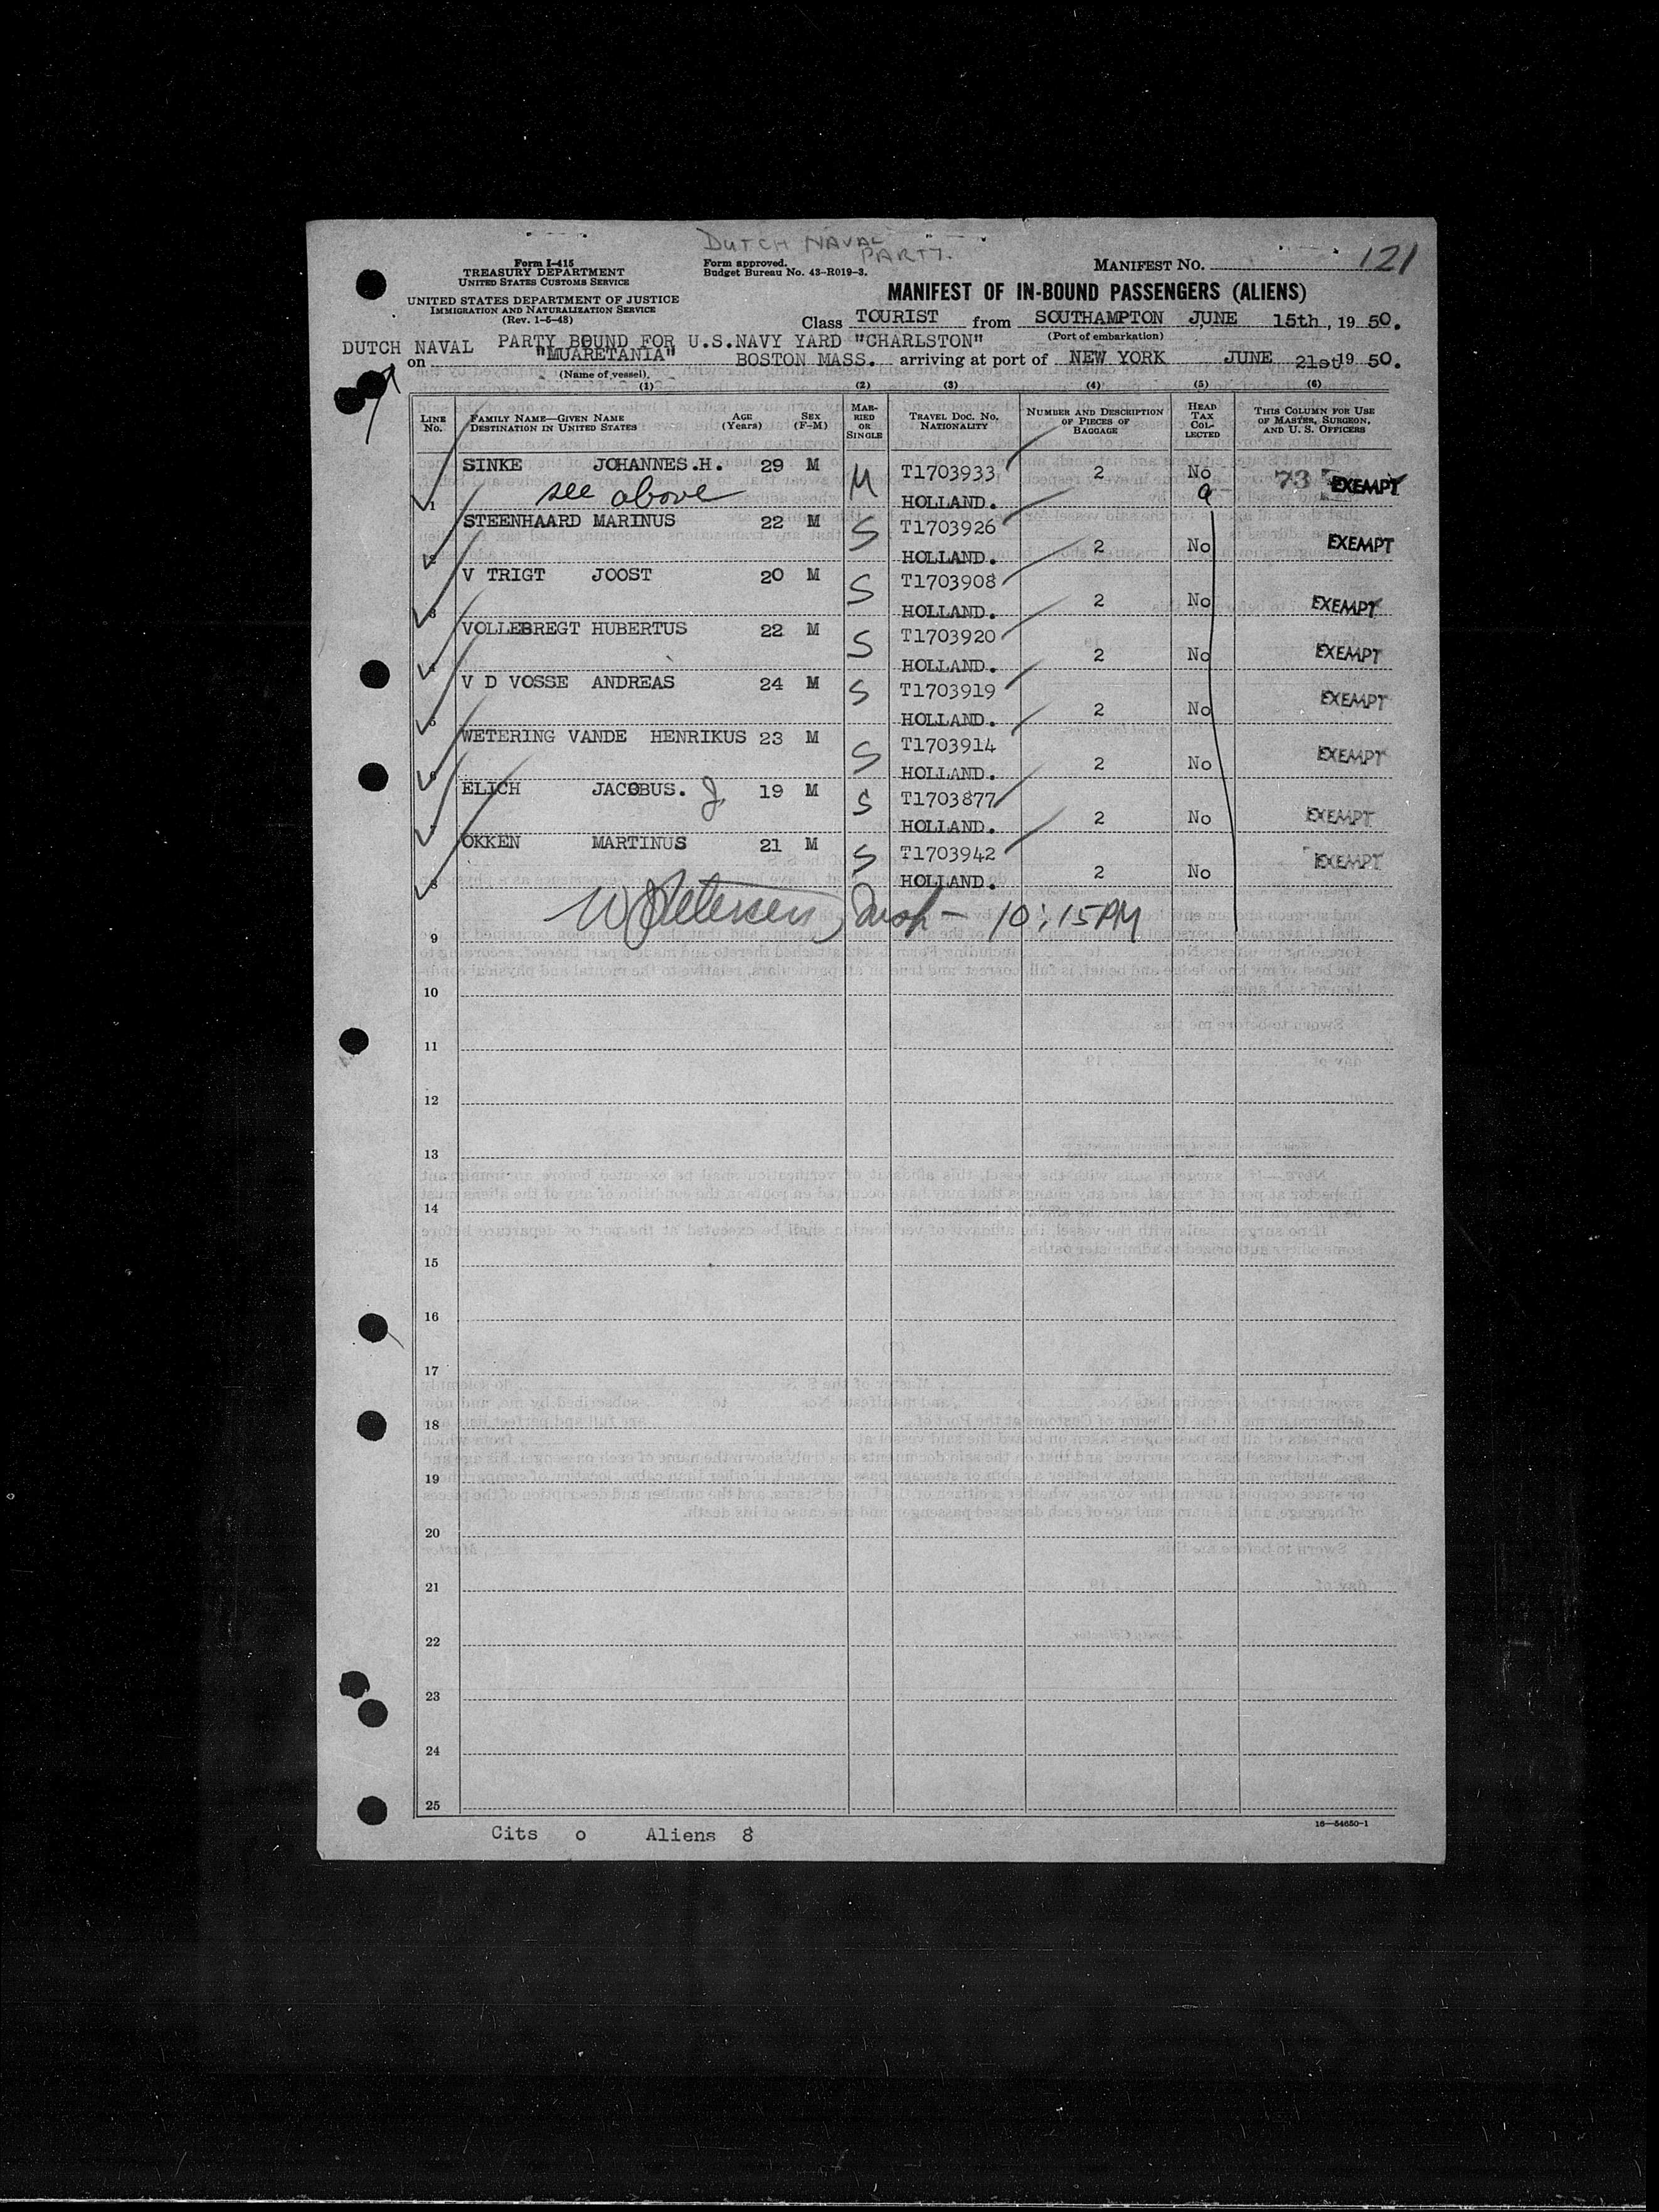 DUTCH NAVAL
PARTY.
Form I-415
TREASURY DEPARTMENT
UNITED STATES CUSTOMS SERVICE
UNITED STATES DEPARTMENT OF JUSTICE
IMMIGRATION AND NATURALIZATION SERVICE
(Rev. 1-5-48)
Form approved.
Budget Bureau No. 43-R019-3.
MANIFEST NO. 121
MANIFEST OF IN-BOUND PASSENGERS (ALIENS)
Class TOURIST from SOUTHAMPTON JUNE 15th, 1950.
(Port of embarkation)
DUTCH NAVAL PARTY BOUND FOR U.S.NAVY YARD "CHARLSTON"
on "MUARETANIA" BOSTON MASS. arriving at port of NEW YORK JUNE 21st 1950.
(Name of vessel)
(1) (2) (3) (4) (5) (6)
LINE No. FAMILY NAME—GIVEN NAME DESTINATION IN UNITED STATES AGE (Years) SEX (F-M) MARRIED OR SINGLE TRAVEL DOC. NO. NATIONALITY NUMBER AND DESCRIPTION OF PIECES OF BAGGAGE HEAD TAX COLLECTED THIS COLUMN FOR USE OF MASTER, SURGEON, AND U. S. OFFICERS
SINKE JOHANNES.H. 29 M M T1703933 2 No 73 EXEMPT
1 see above HOLLAND.
STEENHAARD MARINUS 22 M S T1703926
2 HOLLAND. 2 No EXEMPT
V TRIGT JOOST 20 M S T1703908
3 HOLLAND. 2 No EXEMPT
VOLLEBREGT HUBERTUS 22 M S T1703920
4 HOLLAND. 2 No EXEMPT
V D VOSSE ANDREAS 24 M S T1703919
5 HOLLAND. 2 No EXEMPT
WETERING VANDE HENRIKUS 23 M S T1703914
6 HOLLAND. 2 No EXEMPT
ELICH JACOBUS. J. 19 M S T1703877
7 HOLLAND. 2 No EXEMPT
OKKEN MARTINUS 21 M S T1703942
8 HOLLAND. 2 No EXEMPT
Petersen Insp - 10:15PM
9
10
11
12
13
14
15
16
17
18
19
20
21
22
23
24
25
Cits o Aliens 8
16—54650-1